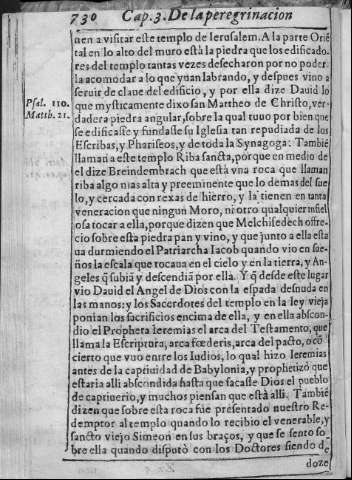 730 Cap. 3. De la peregrinacion
nen a visitar este templo de Ierusalem. A la parte Oriē
tal en lo alto del muro està la piedra que los edificado
res del templo tantas vezes desecharon por no poder
la acomodar a lo que yuan labrando, y despues vino a
seruir de claue del edificio, y por ella dize Dauid lo
Psal. 110.
que mysticamente dixo san Mattheo de Christo, ver-
Matth. 21.
dadera piedra angular, sobre la qual tuuo por bien que
se edificasse y fundasse su Iglesia tan repudiada de los
Escribas, y Phariseos, y de toda la Synagoga: Tambiē
llaman a este templo Riba sancta, porque en medio de
el dize Breindembrach que està vna roca que llaman
riba algo mas alta y preeminente que lo demas del sue
lo, y cercada con rexas de hierro, y la tienen en tanta
veneracion que ningun Moro, ni otro qualquier infiel
osa tocar a ella, porque dizen que Melchisedech offre-
cio sobre esta piedra pan y vino, y que junto a ella esta
ua durmiendo el Patriarcha Iacob quando vio en sue-
ños la escala que tocaua en el cielo y en la tierra, y An-
geles q̃ subiã y descendiã por ella. Y q̃ desde este lugar
vio Dauid el Angel de Dios con la espada desnuda en
las manos: y los Sacerdotes del templo en la ley vieja
ponian los sacrificios encima de ella, y en ella abscon-
dio el Propheta Ieremias el arca del Testamento, que
llama la Escriptura, arca fœderis, arca del pacto, o cō
cierto que vuo entre los Iudios, lo qual hizo Ieremias
antes de la captiuidad de Babylonia, y prophetizò que
estaria alli abscondida hasta que sacasse Dios el pueblo
de captiuerio, y muchos piensan que està alli. Tambiē
dizen que sobre esta roca fue presentado nuestro Re-
demptor al templo quando lo recibio el venerable, y
sancto viejo Simeon en sus braços, y que se sento so-
bre ella quando disputò con los Doctores siendo de
doze